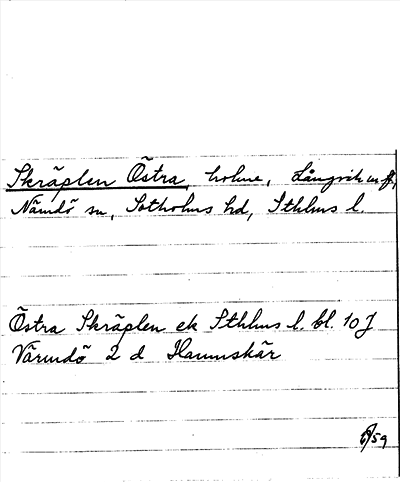 Skräplen Östra, holme, Långvik m fl,
Nämdö sn, Sotholms hd, Sthlms l.
Östra Skräplen ek Sthlms l. bl. 10 J
Värmdö 2 d Hamnskär
59